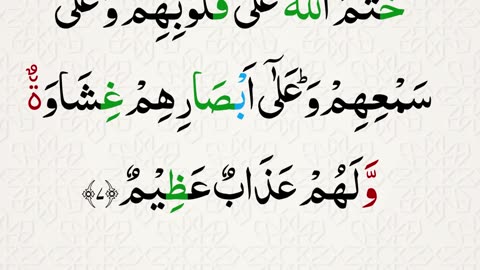 خَتَمَ اللّٰهُ عَلٰى قُلُوْبِهِمْ وَعَلٰى
سَمْعِهِمْ ؕ وَعَلٰۤى اَبْصَارِهِمْ غِشَاوَةٌ
وَّلَهُمْ عَذَابٌ عَظِيْمٌ ﴿۷﴾